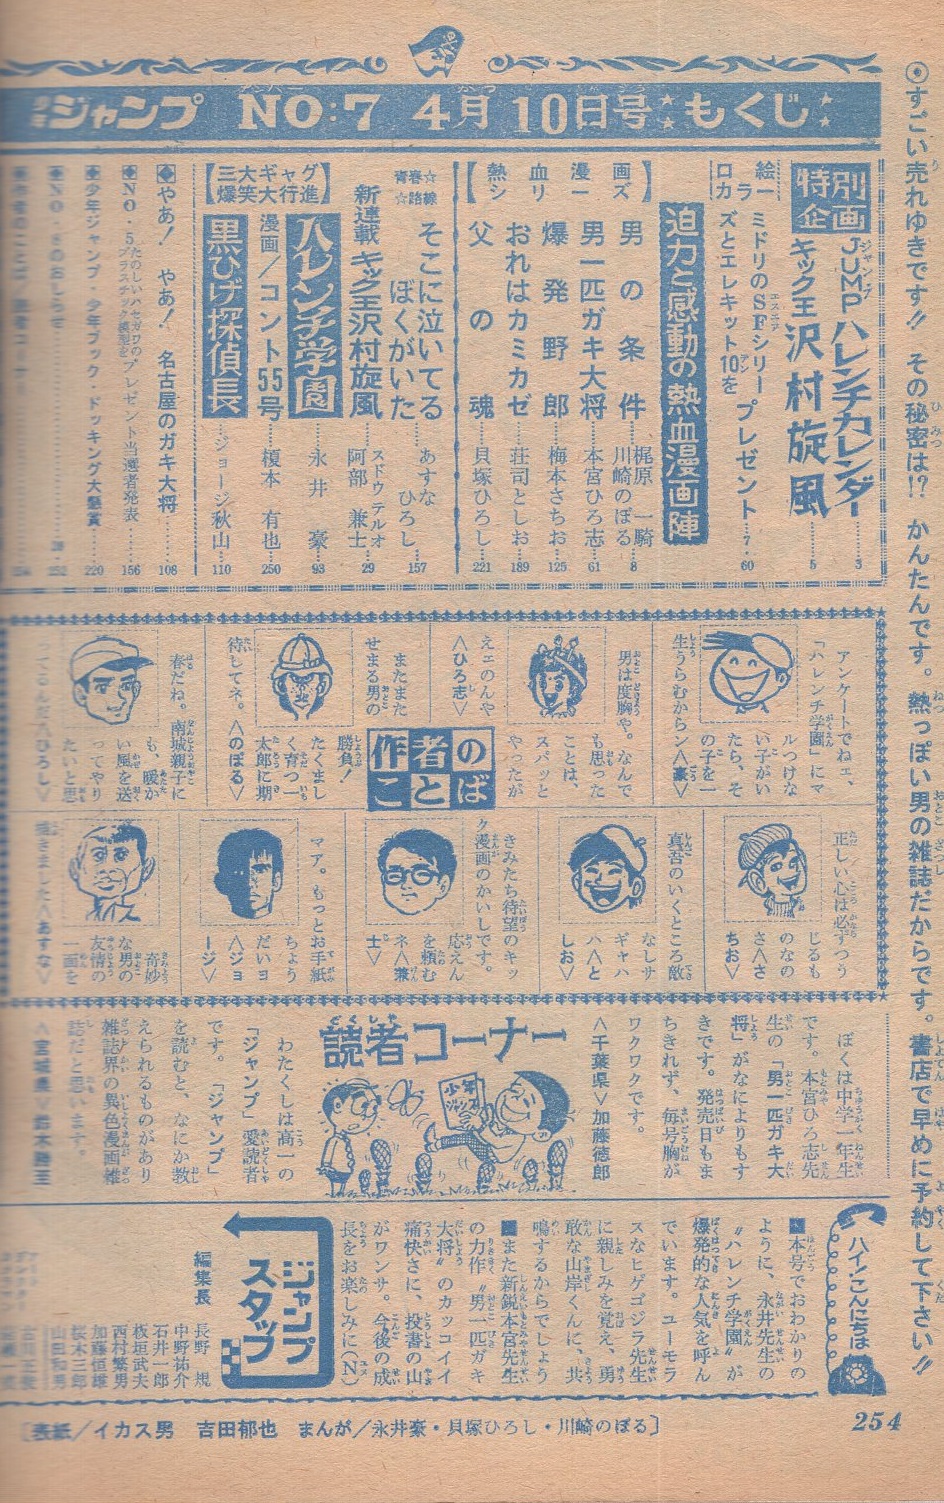 ◉すごい売れゆきです!! その秘密は!? かんたんです。熱っぽい男の雑誌だからです。書店で早めに予約して下さい!!
少年ジャンプ NO:7 4月10日号 もくじ
別画
特企
JUMPハレンチカレンダー……3
キック王沢村旋風……5
絵ーラ
ロカ
ミドリのSFシリー
ズとエレキット10を
プレゼント……7・60
迫力と感動の熱血漫画陣
【熱血漫画
シリーズ】
男の条件……梶原一騎 川崎のぼる…8
男一匹ガキ大将……本宮ひろ志…61
爆発野郎……梅本さちお…125
おれはカミカゼ……荘司としお…189
父の魂……貝塚ひろし…221
青春☆
☆路線
そこに泣いてる
ぼくがいた……あすなひろし…157
新連載 キック王沢村旋風……スドウテルオ 阿部兼士…29
【三大ギャグ
爆笑大行進】
ハレンチ学園……永井豪…93
漫画/コント55号……榎本有也…250
黒ひげ探偵長……ジョージ秋山…110
◆やあ! やあ! 名古屋のガキ大将……108
◆NO・5たのしいハセガワのプラスチック模型をプレゼント当選者発表……156
◆少年ジャンプ・少年ブック・ドッキング大懸賞……220
◆NO・8のおしらせ……28・252
作者のことば
アンケートでねェ、
「ハレンチ学園」にマ
ルつけな
い子がい
たら、そ
の子を一
生うらむからン<豪>
男は度胸や。なんで
も思った
ことは、
スパッと
やったが
えェのんや
<ひろ志>
またまた
せまる男の
勝負!
たくまし
く育つ一
太郎に期
待してネ。<のぼる>
春だね。南城親子に
も、暖か
い風を送
ってやり
たいと思
ってるんだ<ひろし>
正しい心は必ずつう
じるも
のなの
さ<さ
ちお>
真吾のいくところ敵
なしサ
ギャハ
ハ<と
しお>
きみたち待望のキッ
ク漫画のかいしです。
応えん
を頼む
ネ<兼
士>
マア。もっとお手紙
ちょう
だいョ
<ジョ
ージ>
奇妙
な男の
友情の
一面を
描きました<あすな>
読者コーナー
少年ジャンプ
ぼくは中学一年生
です。本宮ひろ志先
生の「男一匹ガキ大
将」がなによりもす
きです。発売日もま
ちきれず、毎号胸が
ワクワクです。
<千葉県>加藤徳郎
わたくしは高一の
「ジャンプ」愛読者
です。「ジャンプ」
を読むと、なにか教
えられるものがあり
雑誌界の異色漫画雑
誌だと思います。
<宮城県>鈴木勝王
ハイ!こんにちは
■本号でおわかりの
ように、永井先生の
“ハレンチ学園”が
爆発的な人気を呼ん
でいます。ユーモラ
スなヒゲゴジラ先生
に親しみを覚え、勇
敢な山岸くんに、共
鳴するからでしょう
■また新鋭本宮先生
の力作“男一匹ガキ
大将”のカッコイイ
痛快さに、投書の山
がワンサ。今後の成
長をお楽しみに(N)
ジャンプ
スタッフ
編集長 長野規
中野祐介
石井一郎
板垣武夫
西村繁男
加藤恒雄
桜木三郎
山田和男
[表紙/イカス男 吉田郁也 まんが/永井豪・貝塚ひろし・川崎のぼる]
254